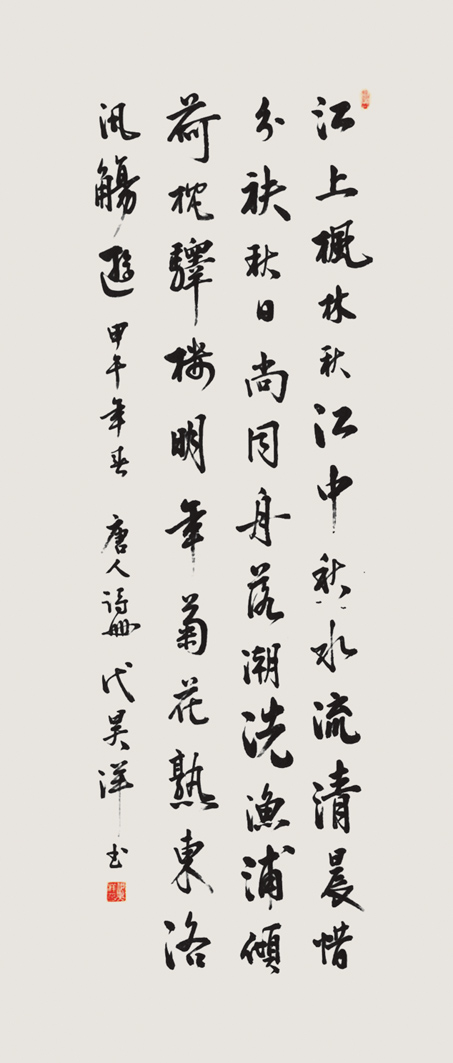 江上楓林秋江中秋水流清晨惜
分袂秋日尚同舟落潮洗漁浦傾
荷枕驛樓明年菊花熟東洛
汎觴遊 甲午年春 唐人詩冊 代昊洋书